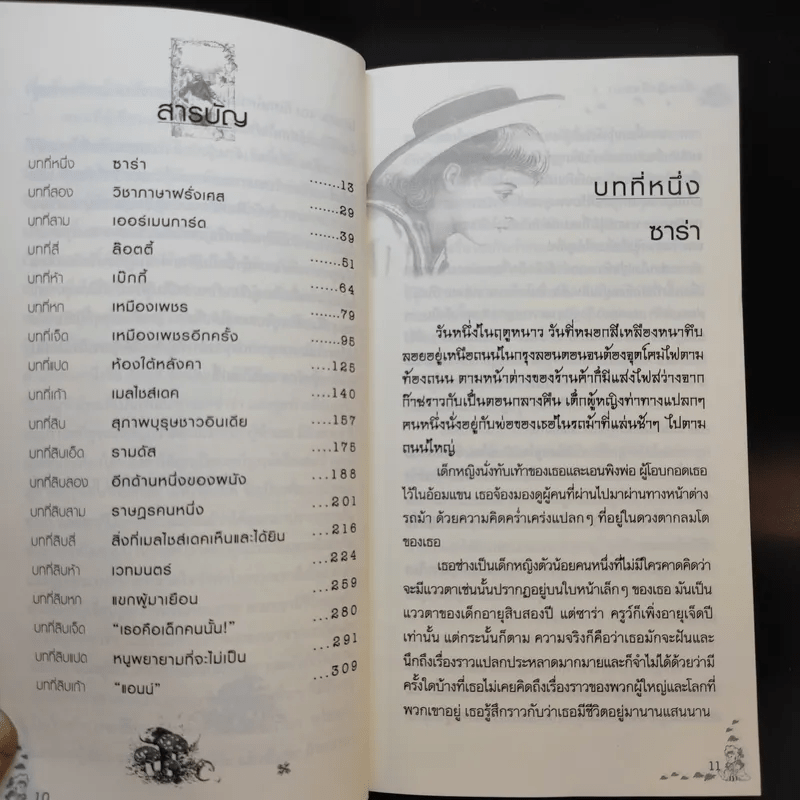 สารบัญ
บทที่หนึ่ง ซาร่า .......13
บทที่สอง วิชาภาษาฝรั่งเศส .......29
บทที่สาม เออร์เมนการ์ด .......39
บทที่สี่ ล๊อตตี้ .......51
บทที่ห้า เบ๊กกี้ .......64
บทที่หก เหมืองเพชร .......79
บทที่เจ็ด เหมืองเพชรอีกครั้ง .......95
บทที่แปด ห้องใต้หลังคา .....125
บทที่เก้า เมลไชส์เดค ....140
บทที่สิบ สุภาพบุรุษชาวอินเดีย ....157
บทที่สิบเอ็ด รามดัส ....175
บทที่สิบสอง อีกด้านหนึ่งของผนัง ....188
บทที่สิบสาม ราษฎรคนหนึ่ง ....201
บทที่สิบสี่ สิ่งที่เมลไชส์เดคเห็นและได้ยิน ...216
บทที่สิบห้า เวทมนตร์ ...224
บทที่สิบหก แขกผู้มาเยือน ...259
บทที่สิบเจ็ด "เธอคือเด็กคนนั้น!" ...280
บทที่สิบแปด หนูพยายามที่จะไม่เป็น ...291
บทที่สิบเก้า "แอนน์" ...309
10
บทที่หนึ่ง
ซาร่า
วันหนึ่งในฤดูหนาว วันที่หมอกสีเหลืองหนาทึบ
ลอยอยู่เหนือถนนในกรุงลอนดอนจนต้องจุดโคมไฟตาม
ท้องถนน ตามหน้าต่างของร้านค้าก็มีแสงไฟสว่างจาก
ก๊าซราวกับเป็นตอนกลางคืน เด็กผู้หญิงท่าทางแปลกๆ
คนหนึ่งนั่งอยู่กับพ่อของเธอในรถม้าที่แล่นช้าๆ ไปตาม
ถนนใหญ่
เด็กหญิงนั่งทับเท้าของเธอและเอนพิงพ่อ ผู้โอบกอดเธอ
ไว้ในอ้อมแขน เธอจ้องมองดูผู้คนที่ผ่านไปมาผ่านทางหน้าต่าง
รถม้า ด้วยความคิดคร่ำเคร่งแปลกๆ ที่อยู่ในดวงตากลมโต
ของเธอ
เธอช่างเป็นเด็กหญิงตัวน้อยคนหนึ่งที่ไม่มีใครคาดคิดว่า
จะมีแววตาเช่นนั้นปรากฏอยู่บนใบหน้าเล็กๆ ของเธอ มันเป็น
แววตาของเด็กอายุสิบสองปี แต่ซาร่า ครูว์ก็เพิ่งอายุเจ็ดปี
เท่านั้น แต่กระนั้นก็ตาม ความจริงก็คือว่าเธอมักจะฝันและ
นึกถึงเรื่องราวแปลกประหลาดมากมายและก็จำไม่ได้ด้วยว่ามี
ครั้งใดบ้างที่เธอไม่เคยคิดถึงเรื่องราวของพวกผู้ใหญ่และโลกที่
พวกเขาอยู่ เธอรู้สึกราวกับว่าเธอมีชีวิตอยู่มานานแสนนาน
11